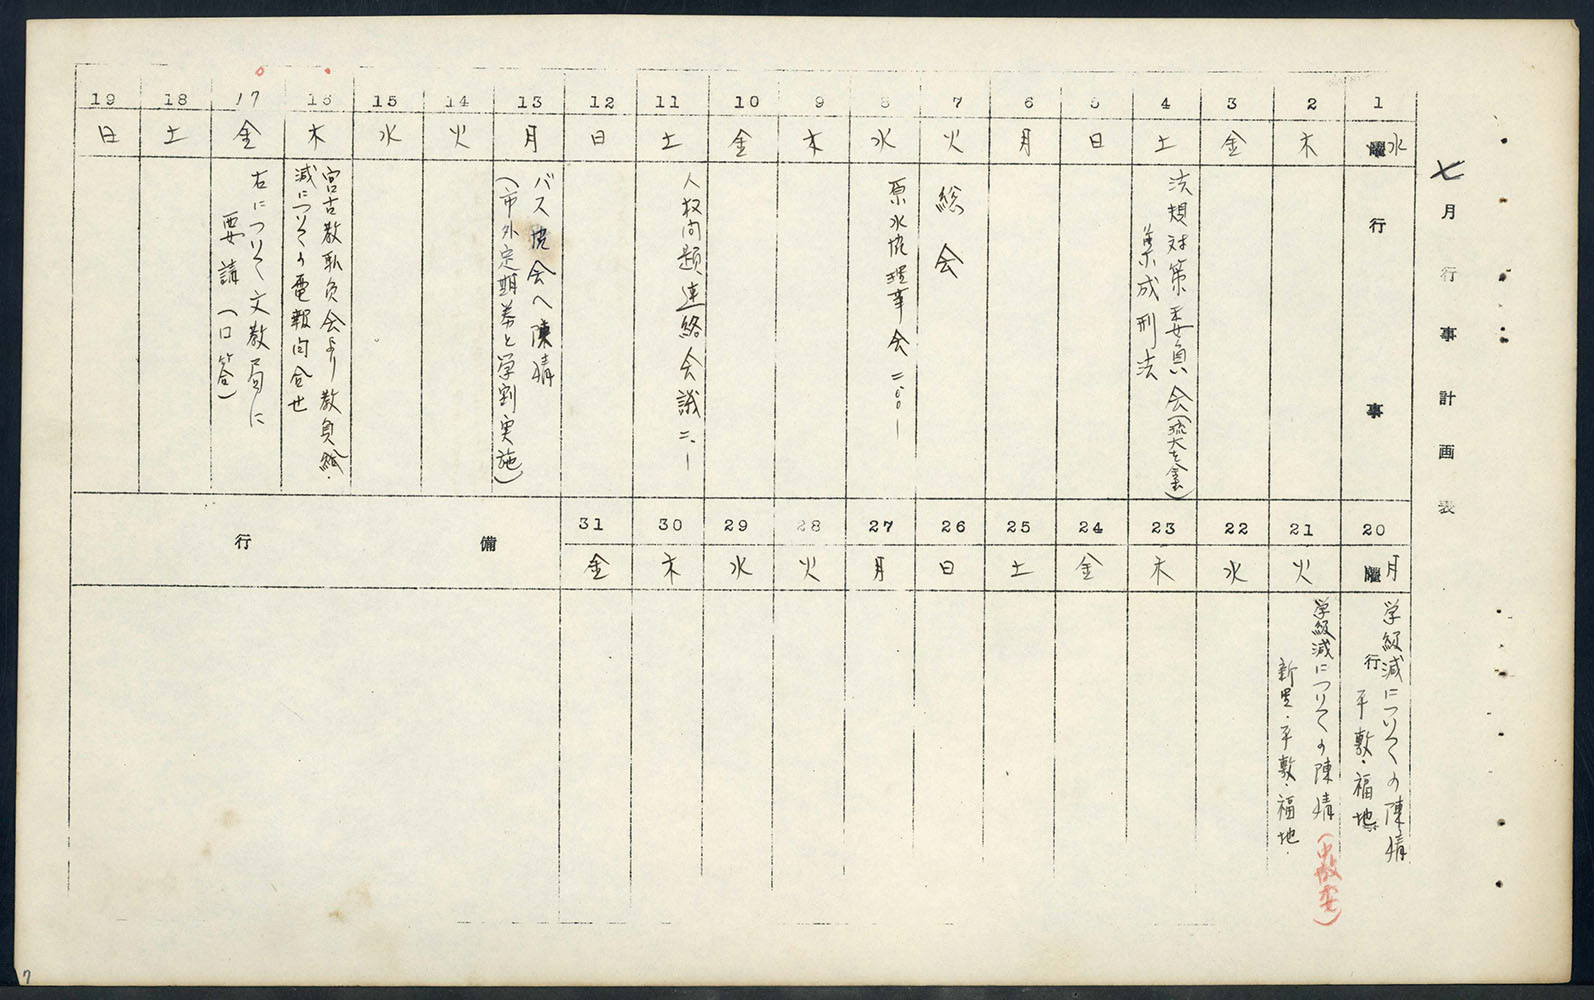 七月行事計画表
1
水
曜
行事
2
木
3
金
4
土
法規対策委員会(琉大を含む)
集成刑法
5
日
6
月
7
火
総会
8
水
原水協理事会 二.〇〇―
9
木
10
金
11
土
人权問題連絡会議 二.―
12
日
13
月
バス協会へ陳情
(市外定期券と学割実施)
14
火
15
水
16
木
宮古教职員会より教員給
減についての電報問合せ
17
金
右について文教局に
要請(口答)
18
土
19
日
20
月
曜
行
学級減についての陳情
平敷・福地
21
火
学級減についての陳情(中教委)
新里・平敷・福地
22
水
23
木
24
金
25
土
26
日
27
月
28
火
29
水
30
木
31
金
備行
7